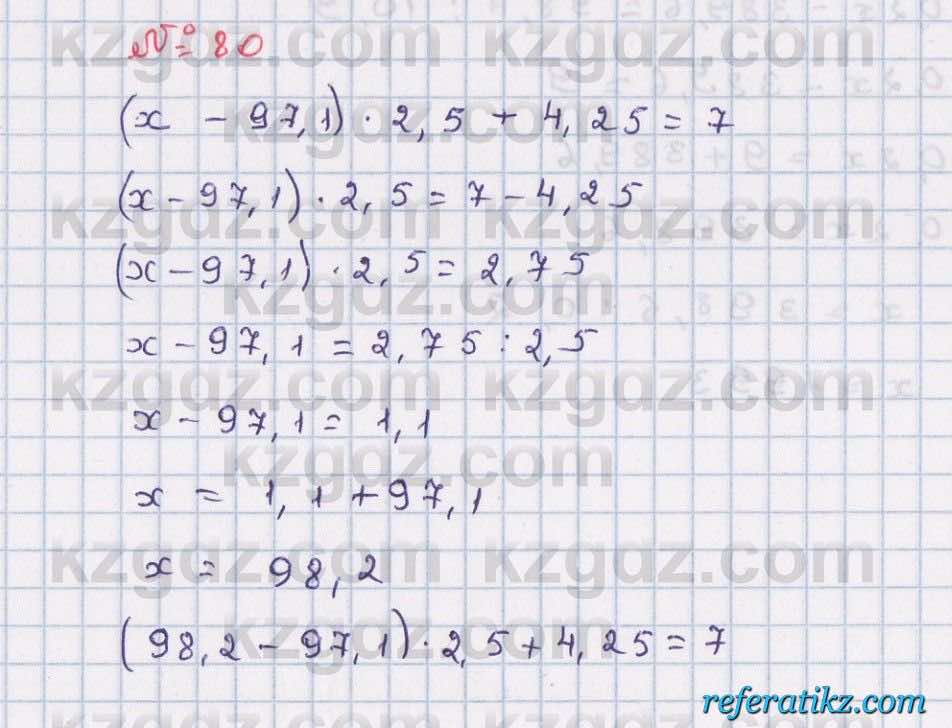 № 80
(x - 97,1) · 2,5 + 4,25 = 7
(x - 97,1) · 2,5 = 7 - 4,25
(x - 97,1) · 2,5 = 2,75
x - 97,1 = 2,75 : 2,5
x - 97,1 = 1,1
x = 1,1 + 97,1
x = 98,2
(98,2 - 97,1) · 2,5 + 4,25 = 7
kzgdz.com
referatikz.com